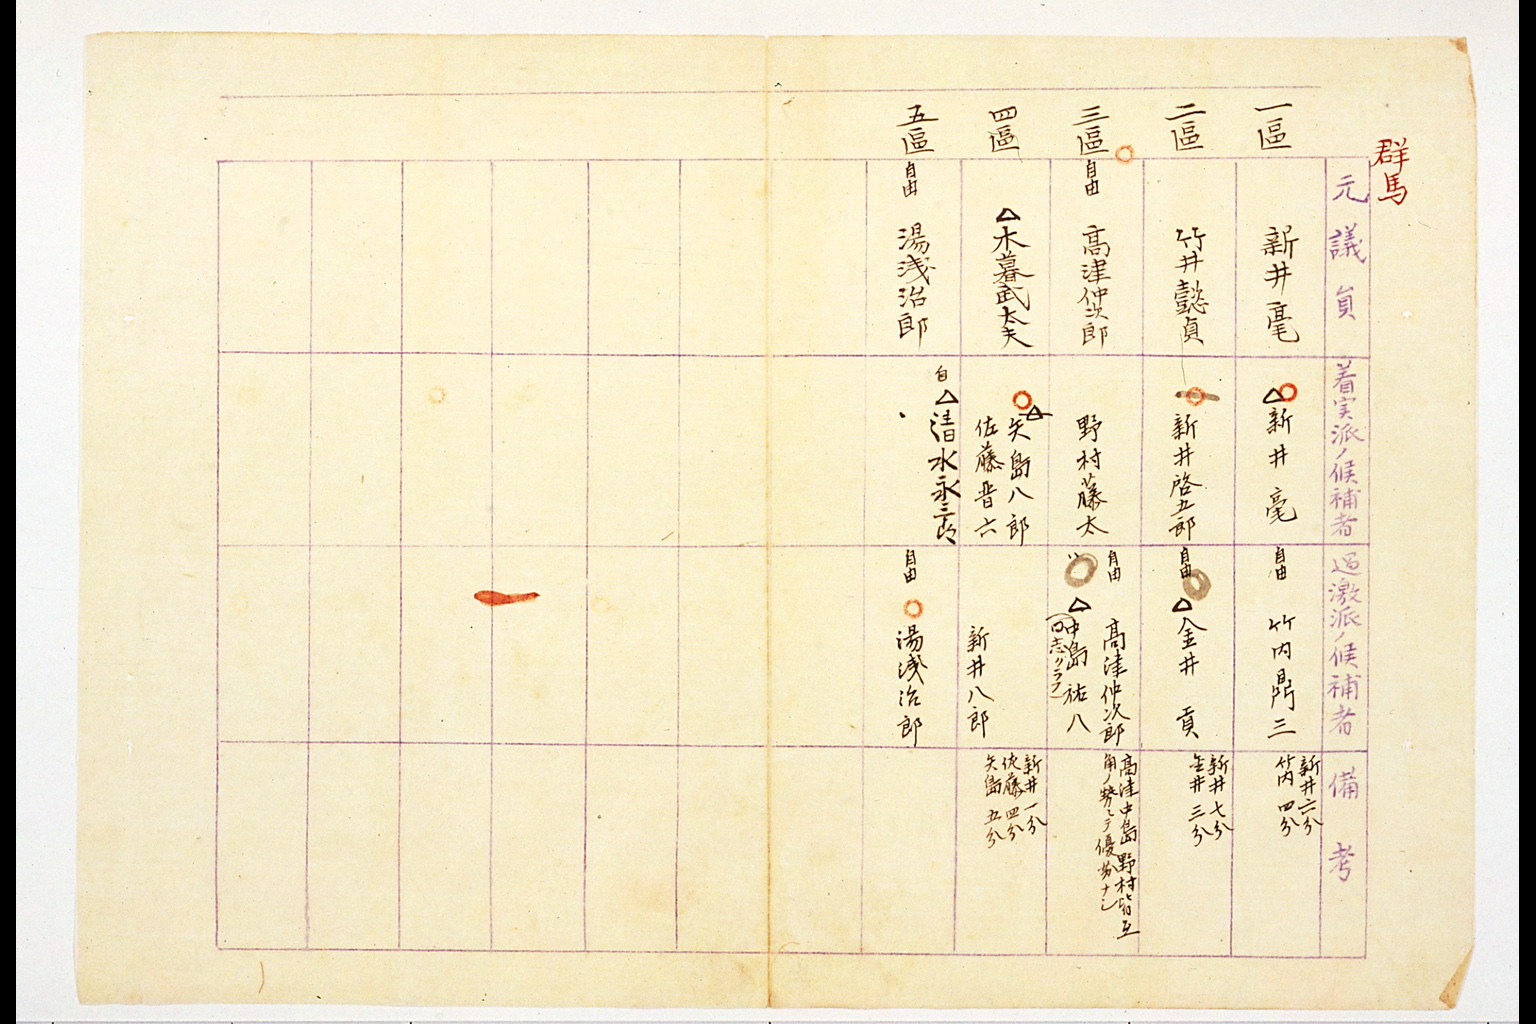 群馬
元議員
着実派ノ候補者
過激派ノ候補者
備考
一區
新井毫
新井毫
自由
竹内鼎三
新井六分
竹内四分
二區
竹井懿貞
新井啓五郎
自由
金井貢
新井七分
金井三分
三區
自由
高津仲次郎
野村藤太
自由
高津仲次郎
中島祐八
(同志クラブ)
高津中島野村皆互
角ノ勢ニテ優劣ナシ
四區
木暮武太夫
矢島八郎
佐藤晋六
新井八郎
新井一分
佐藤四分
矢島五分
五區
自由
湯浅治郎
自
清水永三郎
自由
湯浅治郎